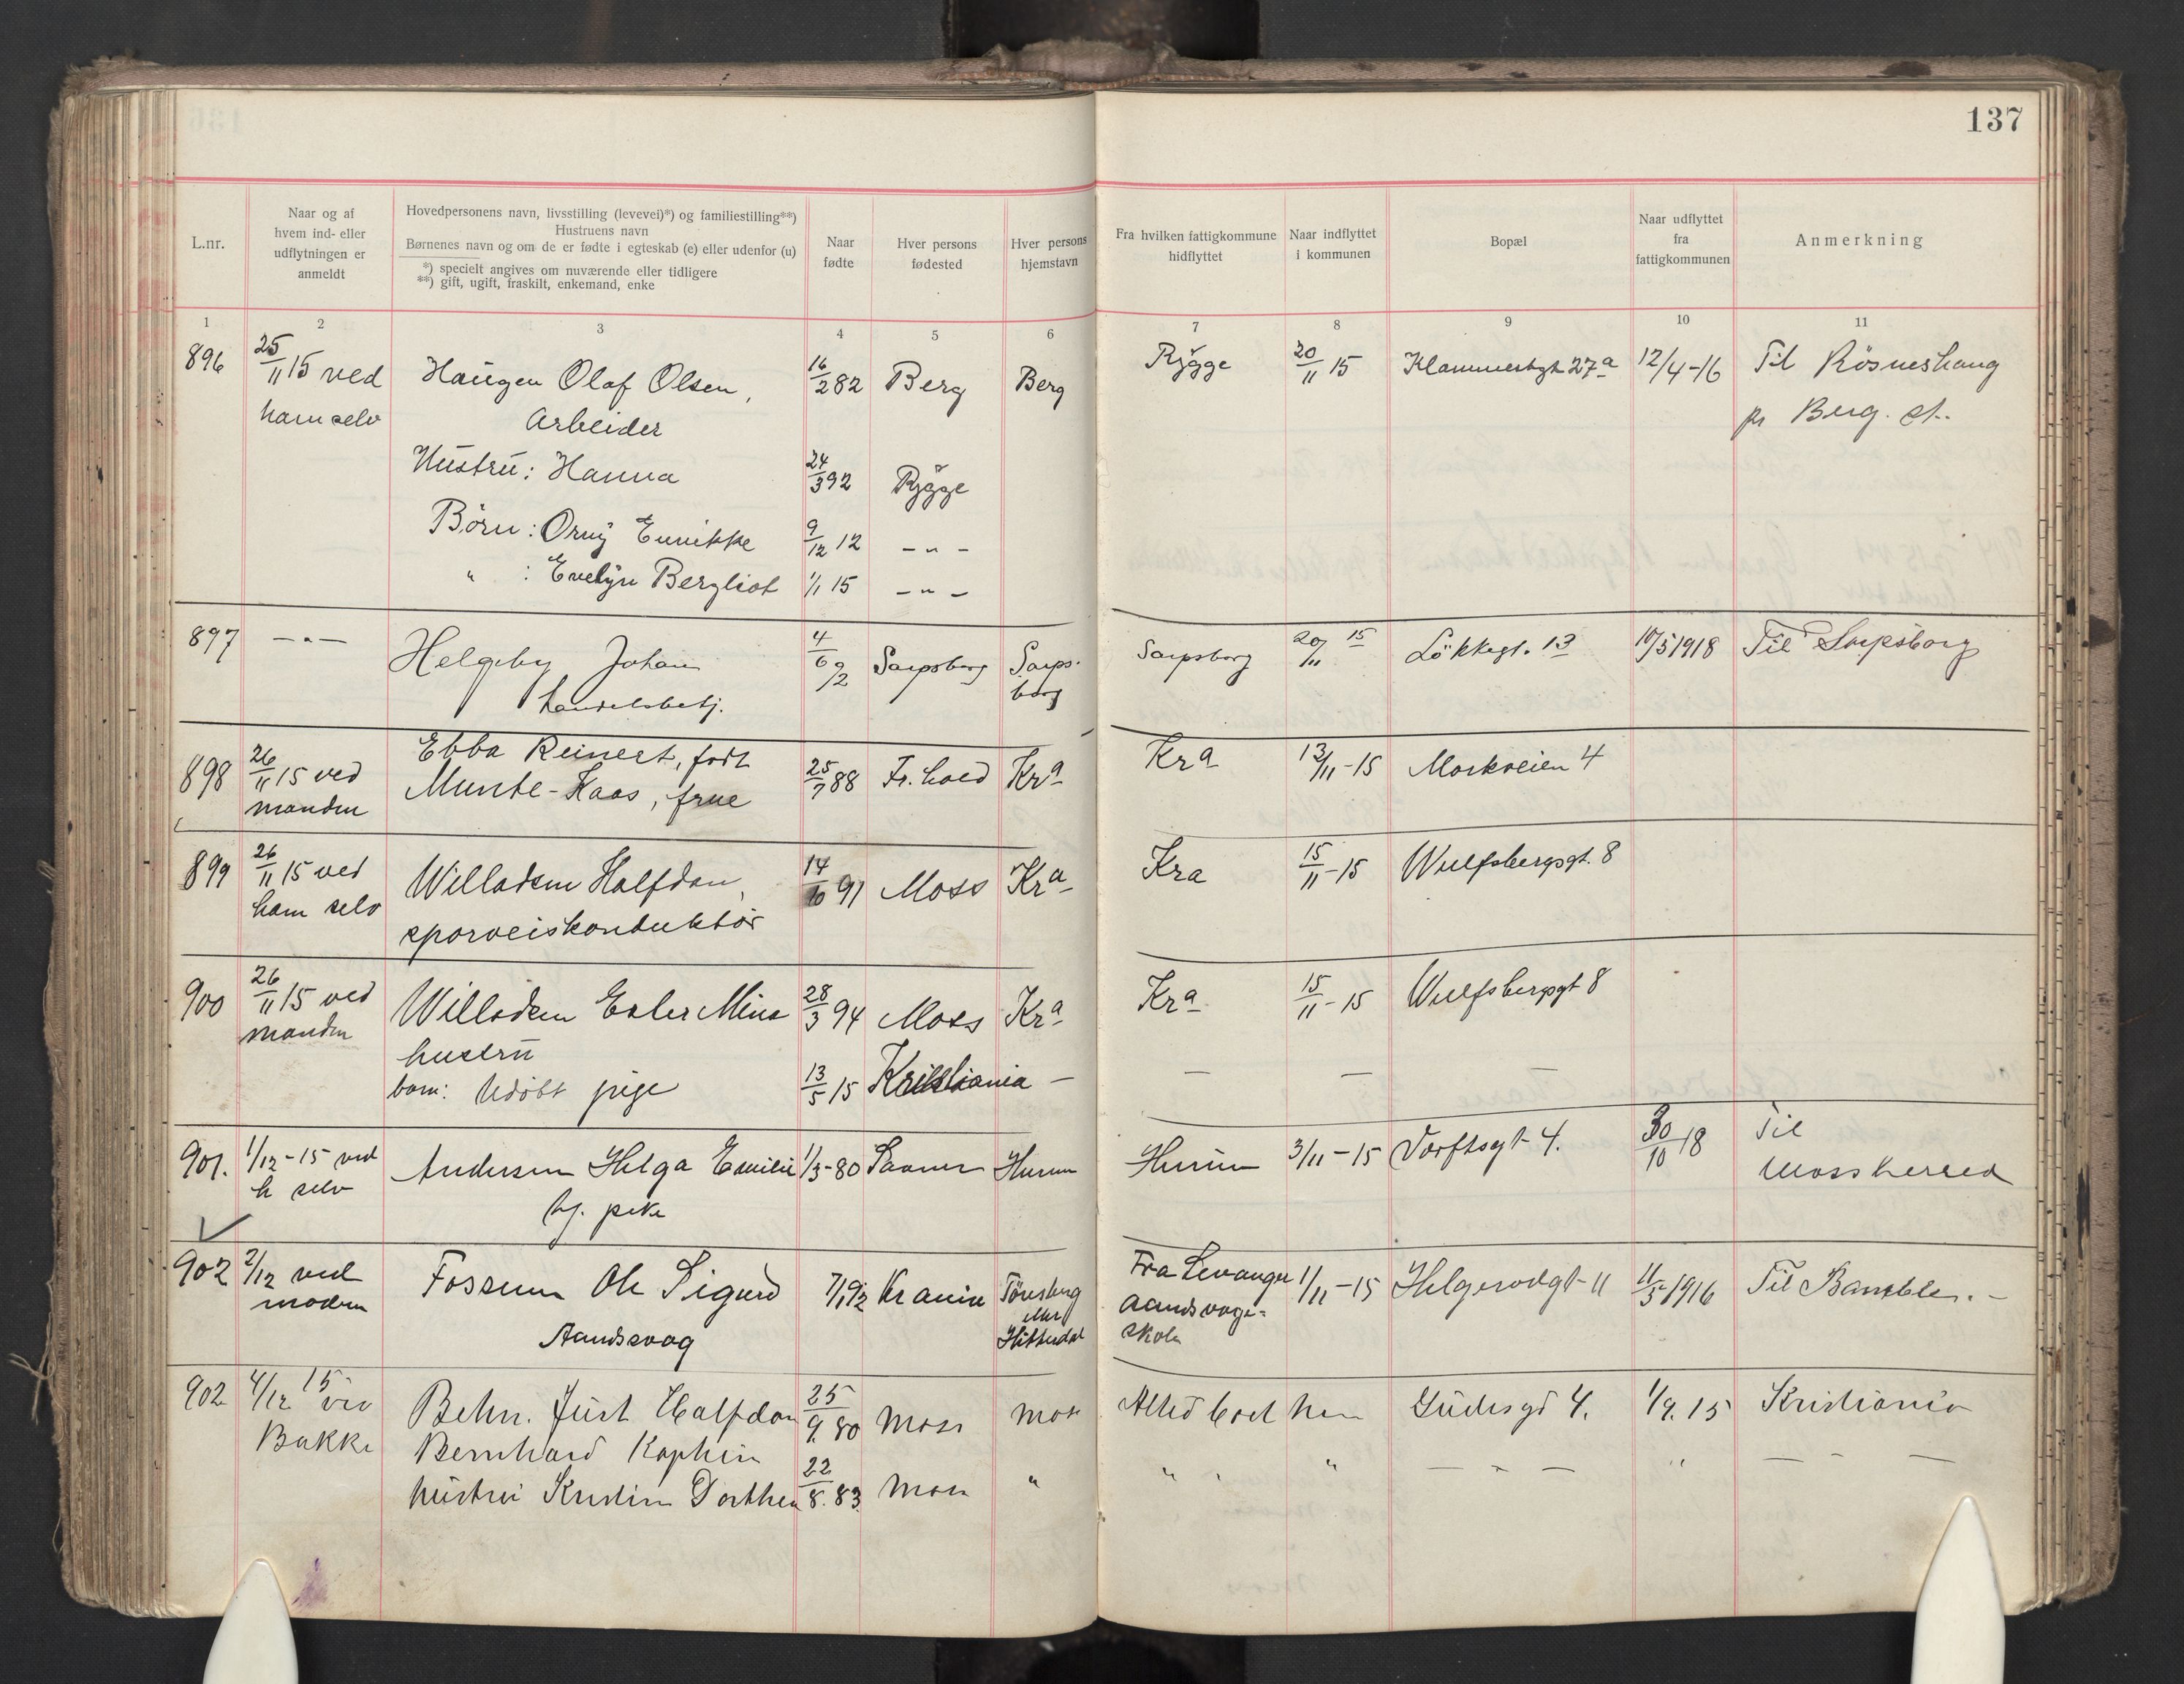 137
L.nr.
Naar og af
hvem ind- eller
udflytningen er
anmeldt
Hovedpersonens navn, livsstilling (levevei)*) og familiestilling**)
Hustruens navn
Børnenes navn og om de er fødte i egteskab (e) eller udenfor (u)
*) specielt angives om nuværende eller tidligere
**) gift, ugift, fraskilt, enkemand, enke
Naar
fødte
Hver persons
fødested
Hver persons
hjemstavn
Fra hvilken fattigkommune
hidflyttet
Naar indflyttet
i kommunen
Bopæl
Naar udflyttet
fra
fattigkommunen
Anmerkning
1 2 3 4 5 6 7 8 9 10 11
896 25/11 15 ved Haugen Olaf Olsen, 16/2 82 Berg Berg Rygge 20/11 15 27a 12/4-16 Til Rösneshaug
ham selv Arbeider pr Berg. st.
Hustru: Hanna 24/3 92 Rygge
Börn: Orny Ennikke 9/12 12 - " -
" : Evelyn Bergliot 1/1 15 - " -
897 - " - Helgeby Johan 4/6 92 Sarpsborg Sarps- Sarpsborg 20/11 15 Lökkegt. 13 10/5 1918 Til Sarpsborg
handelsbetj. borg
898 26/11 15 ved Ebba Reinert, født 25/7 88 Fr.hald Kra 13/11-15 Moskveien 4
manden Munte-Kaas, frue Kra
899 26/11 15 ved Willadsen Halfdan, 14/10 91 Moss Kra Kra 15/11-15 Wulfsbergsgt. 8
ham selv sporveiskonduktör
900 26/11 15 ved Willadsen Ester Mina 28/3 94 Moss Kra Kra 15/11-15 Wulfsbergsgt 8
manden hustru
barn: Udöbt pige 13/5 15 Kristiania — — — —
901. 1/12-15 ved Andersen Helga Emilie 1/3-80 Hurum Hurum 3/11-15 4. 30/10 18 Til
h selv tj. pike Moss herred
902 2/12 ved Fossum Ole Sigurd 7/1 92 Krania Tönsberg Fra Levanger 1/11-15 Helgerödgt 11 11/5 1916 Til Bamble. -
modern Aandssvag eller Hitterdal aandsvage-
skole
902 4/12 15 ved Behn. Just Halfdan 25/9. 80 Moss Moss Altid boet her Gudesgd 4. 1/9. 15 Kristiania
Bakke Bernhard
hustru Kristine Dorthea 22/8. 83 Moss " " " " — " — " — " —